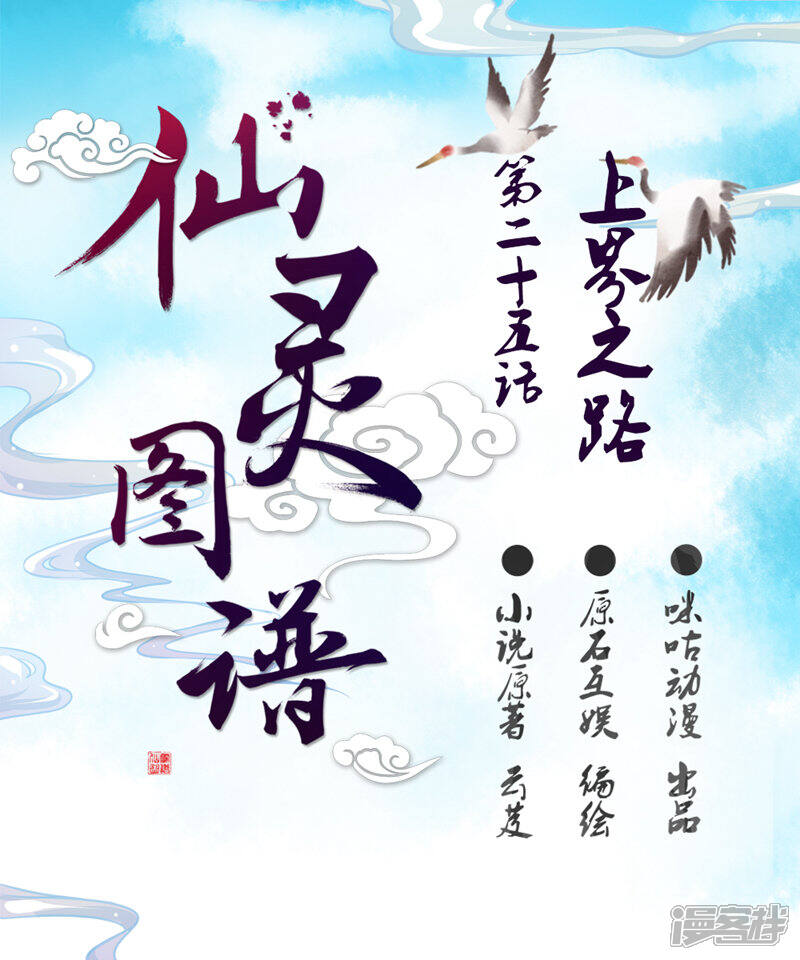 仙灵图谱
第二十五话
上界之路
咪咕动漫 出品
原石互娱 编绘
小说原著 云芨
漫客栈